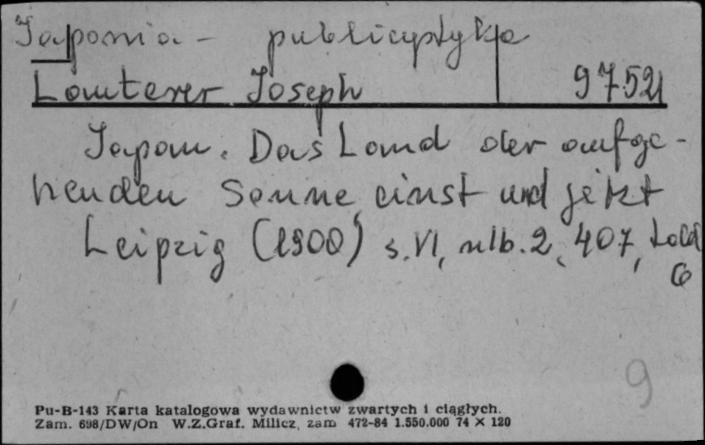 Japonia - publicystyka
Lauterer Joseph 9752
Japan. Das Land der aufge-
henden Sonne, einst und jetzt
Leipzig (1900) s. VI, nlb. 2, 407,
9
Pu-B-143 Karta katalogowa wydawnictw zwartych i ciągłych.
Zam. 698/DW/On W.Z.Graf. Milicz, zam 472-84 1.550.000 74 × 120